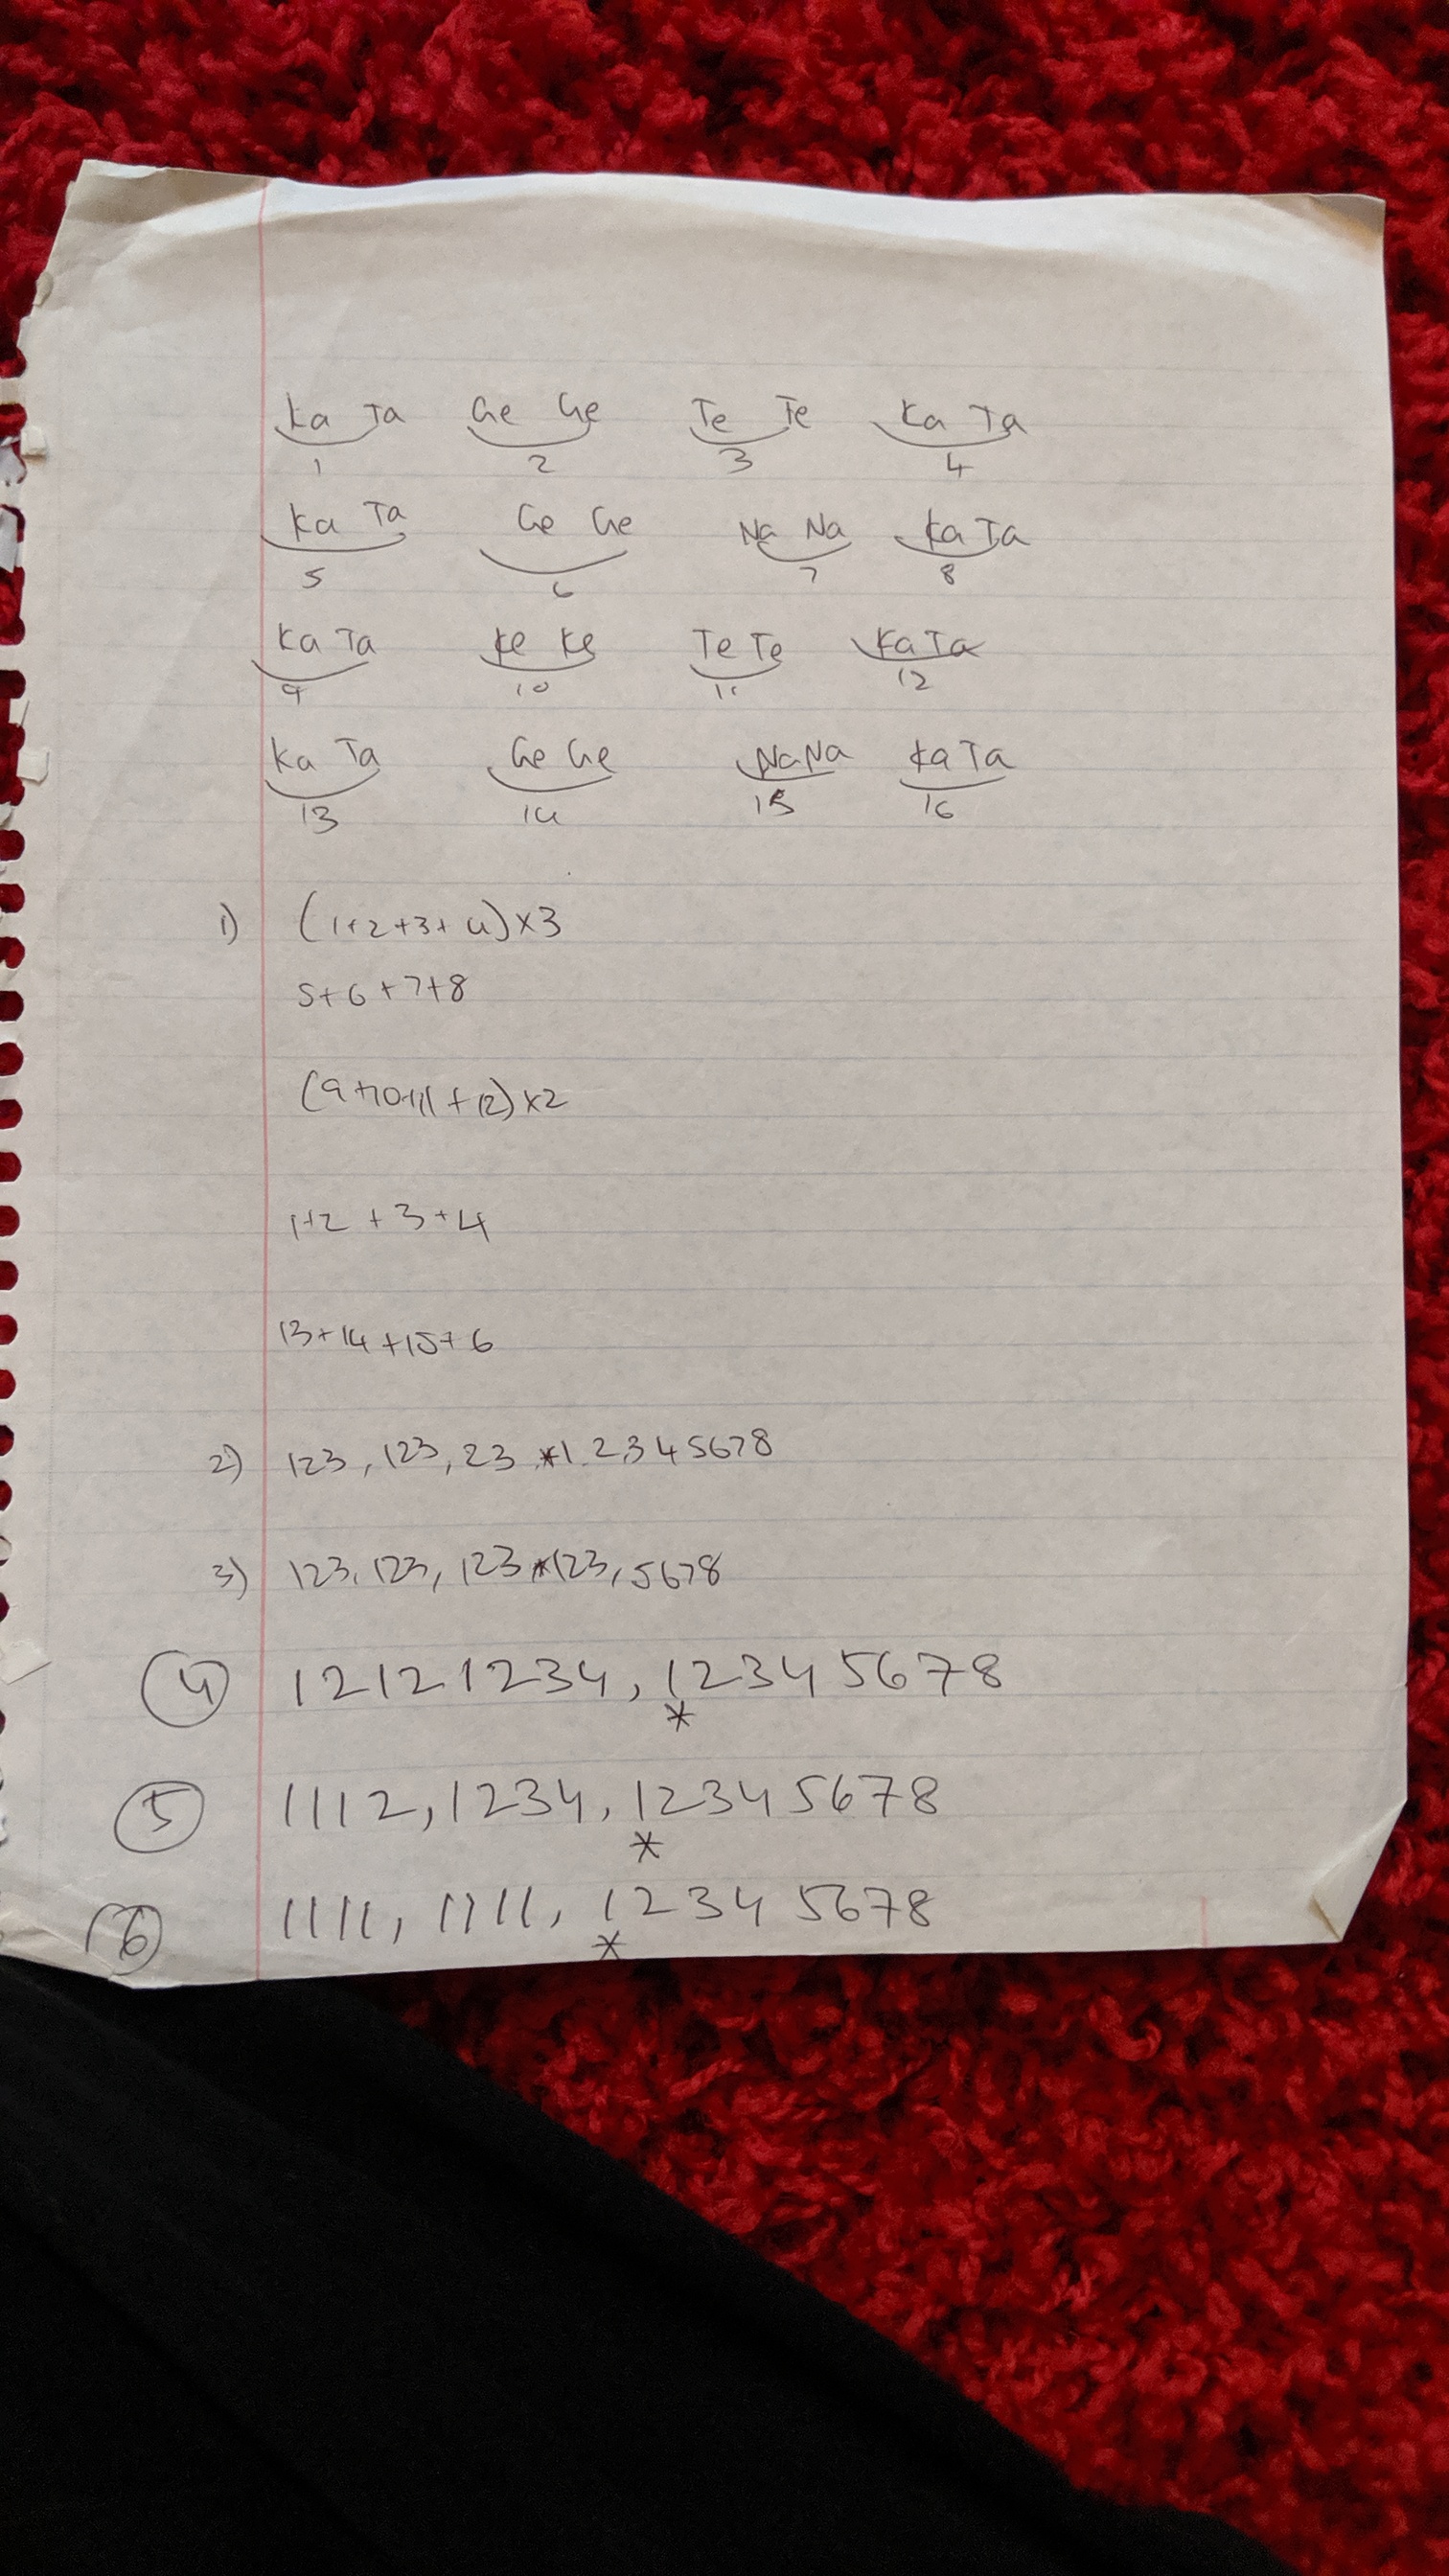 Ka Ta Ge Ge Te Te Ka Ta
1 2 3 4
Ka Ta Ge Ge Na Na Ka Ta
5 6 7 8
Ka Ta Ke Ke Te Te Ka Ta
9 10 11 12
Ka Ta Ge Ge Na Na Ka Ta
13 14 15 16
1) (1+2+3+4)×3
5+6+7+8
(9+10+11+12)×2
1+2+3+4
13+14+15+6
2) 123, 123, 23 *1 2345678
3) 123, 123, 123 *123, 5678
4 12121234, 12345678
*
5 1112, 1234, 12345678
*
6 1111, 1111, 12345678
*